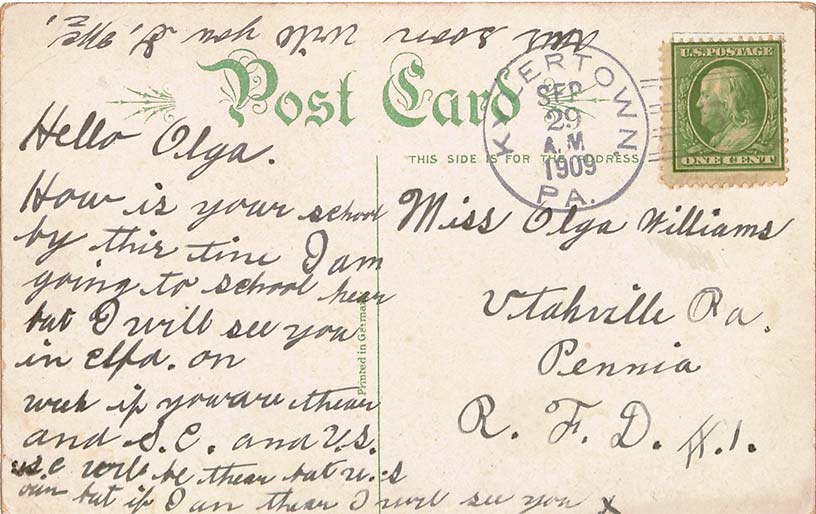 Post Card
THIS SIDE IS FOR THE ADDRESS
KYLERTOWN,
SEP
29
A.M.
1909
PA.
U.S. POSTAGE
ONE CENT
Hello Olga.
How is your school
by this time I am
going to school hear
but I will see you
in clfd. on
week if you are thear
and S.C. and V.S.
S.C will be thear but
but if I am thear I will see you X
Printed in Germany
Miss Olga Williams
Utahville Pa.
Pennia
R. F. D. #1.
Ans. soon will you